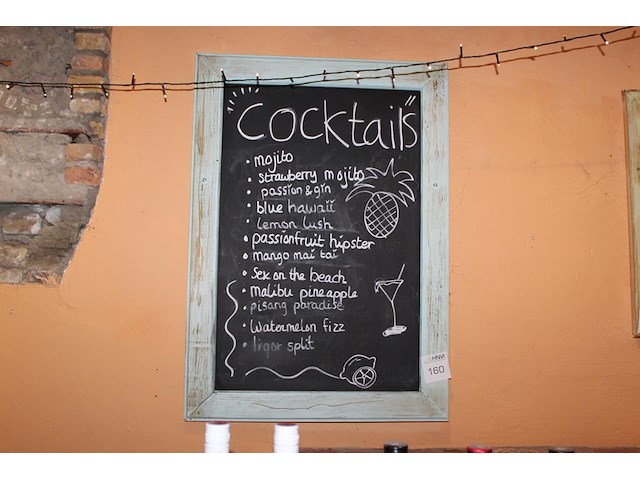 Cocktails
• mojito
• strawberry mojito
• passion & gin
• blue hawaii
• lemon lush
• passionfruit hipster
• mango mai tai
• Sex on the beach
• malibu pineapple
• pisang paradise
• Watermelon fizz
• liqor split
160